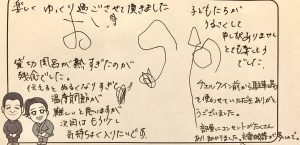 楽しく ゆっくり 過ごさせて頂きました
貸切風呂が熱すぎたのが
残念でした。
伝えると ぬるくなりすぎと
温度調節が
難しいと思いますが
次回は もう少し
気持ちよく入りたいです
子どもたちが
うるさくして
申し訳ありません
とても楽しそう
でした。
チェックイン前から駐車場を
使わせていただきありがと
うございました。
部屋にコンセントがたくさん